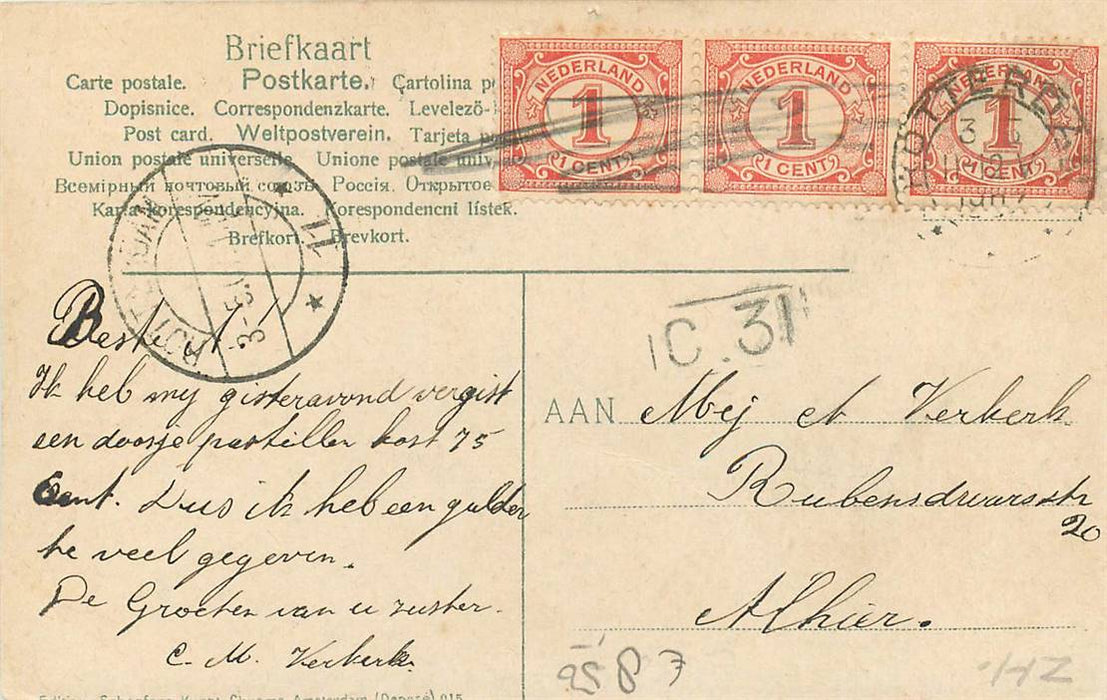 Briefkaart
Carte postale. Postkarte. Cartolina
Dopisnice. Correspondenzkarte. Levelező-
Post card. Weltpostverein. Tarjeta
Union postale universelle. Unione postale univ
Всемірный почтовый союзъ Россія. Открытое
Karta korespondencyjna. Korespondencni lístek.
Brefkort. Brevkort.
NEDERLAND
1
1 CENT
NEDERLAND
1
1 CENT
NEDERLAND
1
1 CENT
ROTTERDAM
11
ROTTERDAM
C. 31
Beste
Ik heb mij gisteravond vergist
een doosje pastillen kost 75
Cent. Dus ik heb een gulden
te veel gegeven.
De Groeten van u zuster.
C. M. Verkerk.
AAN Mej A Verkerk
Rubensdwarsstr
20
Alhier.
Amsterdam (Deposé) 915